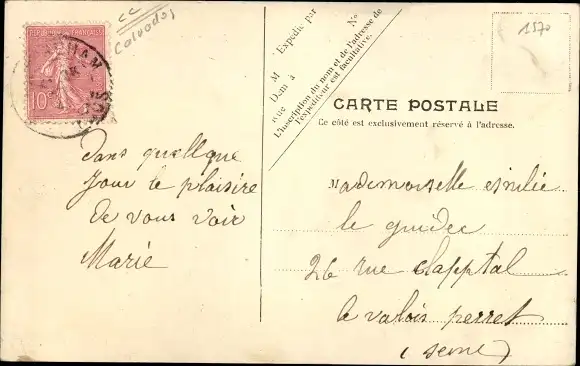 CC
Calvados
1570
REPUBLIQUE FRANÇAISE
10
M
Expédié par
Dem à
rue
No
L'inscription du nom et de l'adresse de
l'expéditeur est facultative.
CARTE POSTALE
Ce côté est exclusivement réservé à l'adresse.
Dans quellque
Jour le plaisire
De vous voir
Marie
Mademoiselle emilie
le guidec
26 rue Clapptal
a valois perret
(seine)